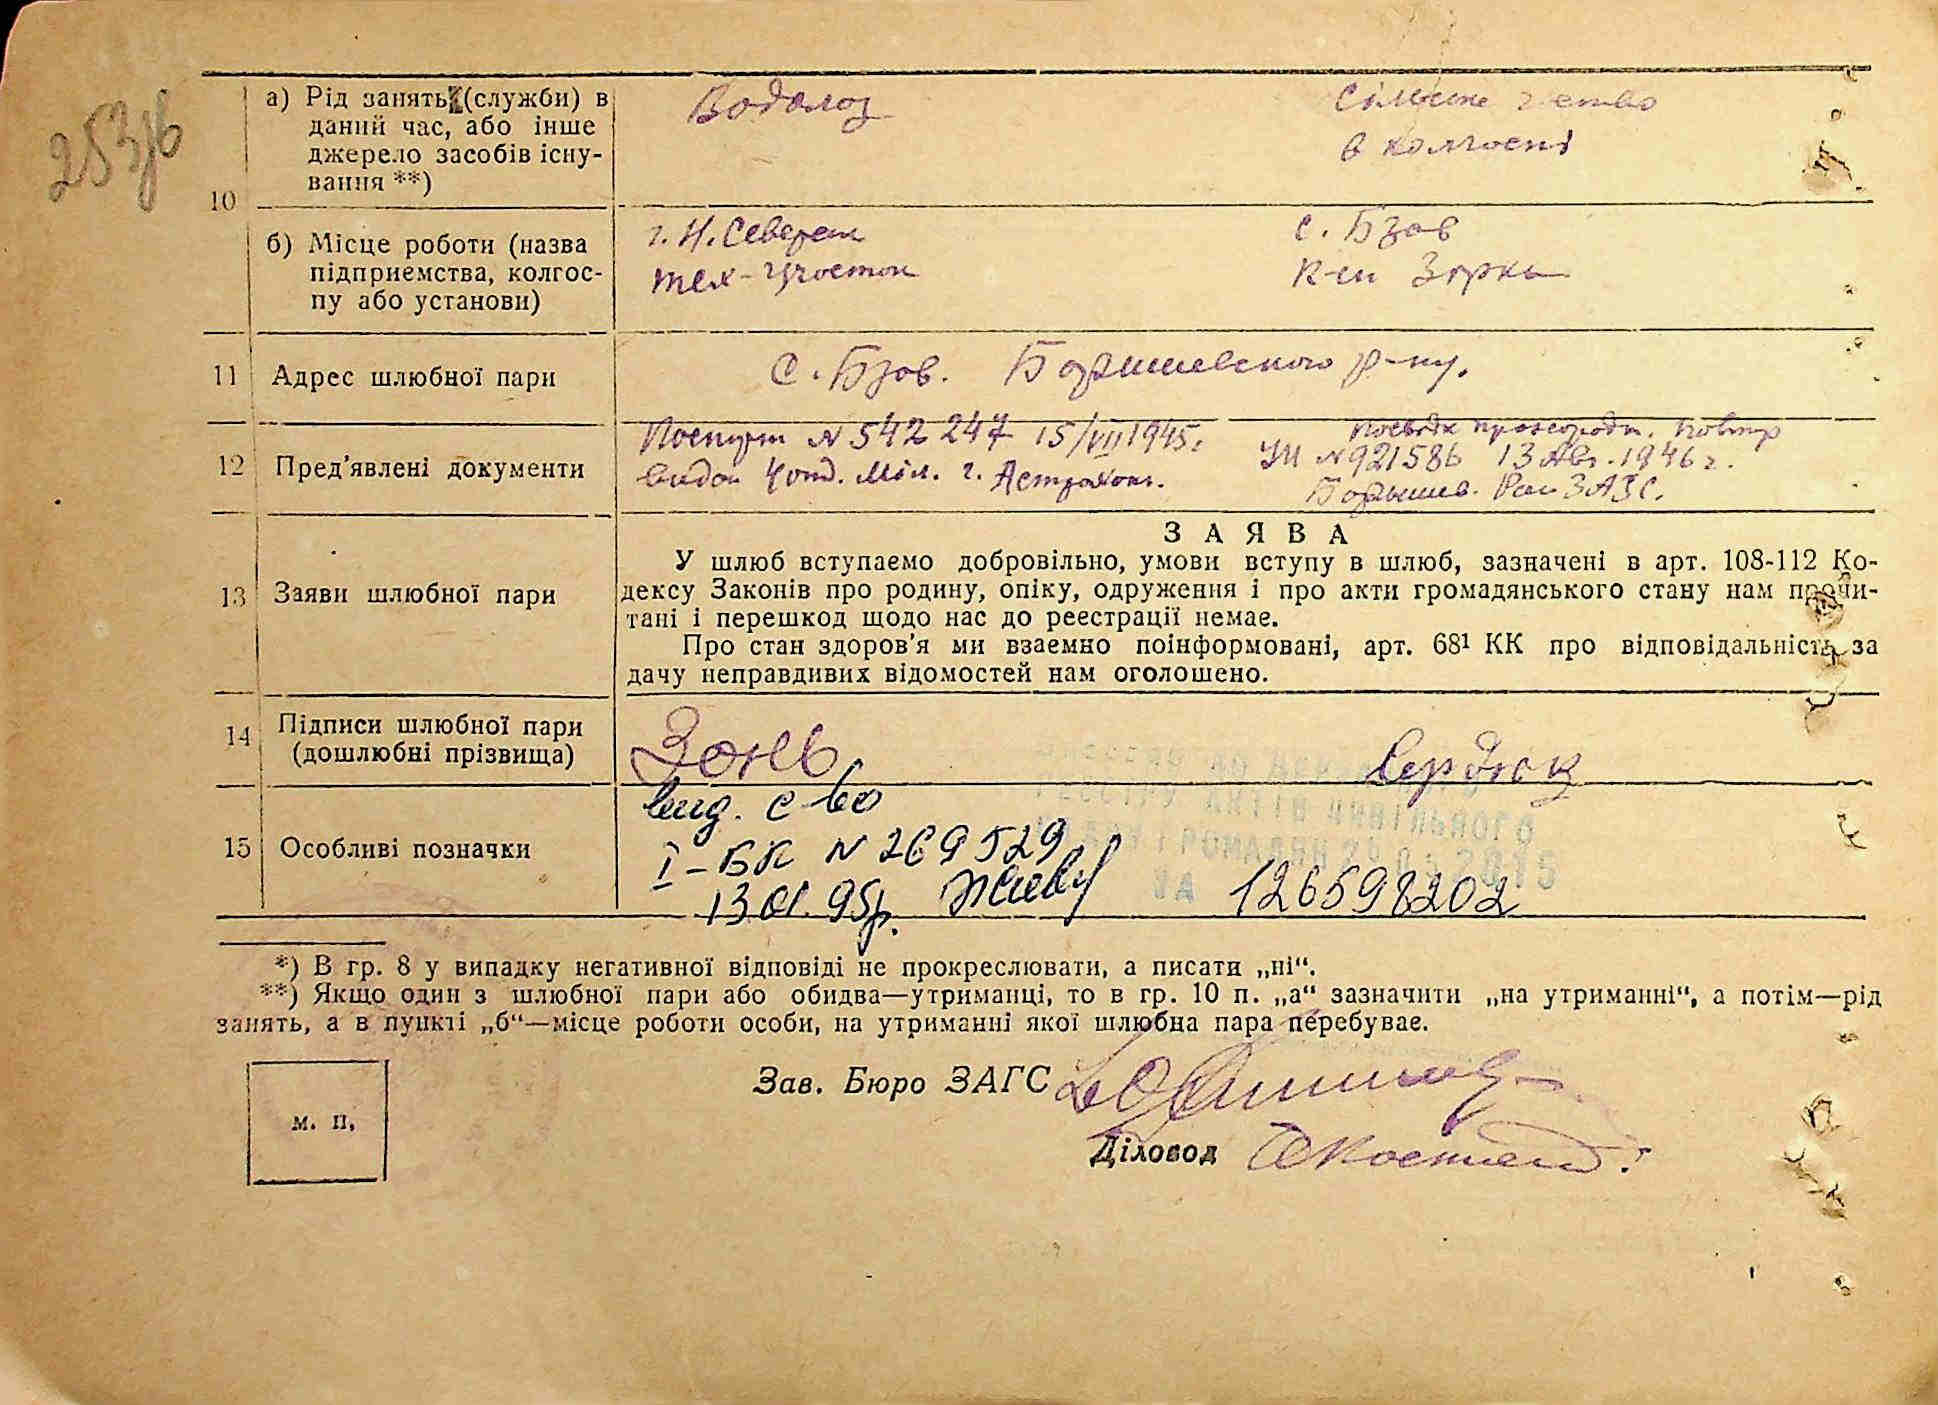 253зв
10
а) Рід занять (служби) в даний час, або інше джерело засобів існування **)
Водолаз
Сільське г-ство
в колгоспі
б) Місце роботи (назва підприємства, колгоспу або установи)
г. Н. Северск
тех-участок
с. Бзов
к-п Зірка
11 Адрес шлюбної пари
с. Бзов. Баришевского р-ну.
12 Пред'явлені документи
Паспорт N 542247 15/VII 1945г
видан 4 отд. Міл. г. Астрахань.
УЛ N 921586 13 Авг. 1946 г.
Баришев. Рай ЗАГС.
13 Заяви шлюбної пари
З А Я В А
У шлюб вступаємо добровільно, умови вступу в шлюб, зазначені в арт. 108-112 Ко-
дексу Законів про родину, опіку, одруження і про акти громадянського стану нам прочи-
тані і перешкод щодо нас до реєстрації немає.
Про стан здоров'я ми взаємно поінформовані, арт. 68¹ КК про відповідальність за
дачу неправдивих відомостей нам оголошено.
14 Підписи шлюбної пари
(дошлюбні прізвища)
Зонь
Сердюк
15 Особливі позначки
вид. с-во
І-БК N 269529
13.01.95р.
126598202
*) В гр. 8 у випадку негативної відповіді не прокреслювати, а писати „ні“.
**) Якщо один з шлюбної пари або обидва—утриманці, то в гр. 10 п. „а“ зазначити „на утриманні“, а потім—рід
занять, а в пункті „б“—місце роботи особи, на утриманні якої шлюбна пара перебуває.
м. п.
Зав. Бюро ЗАГС
Діловод